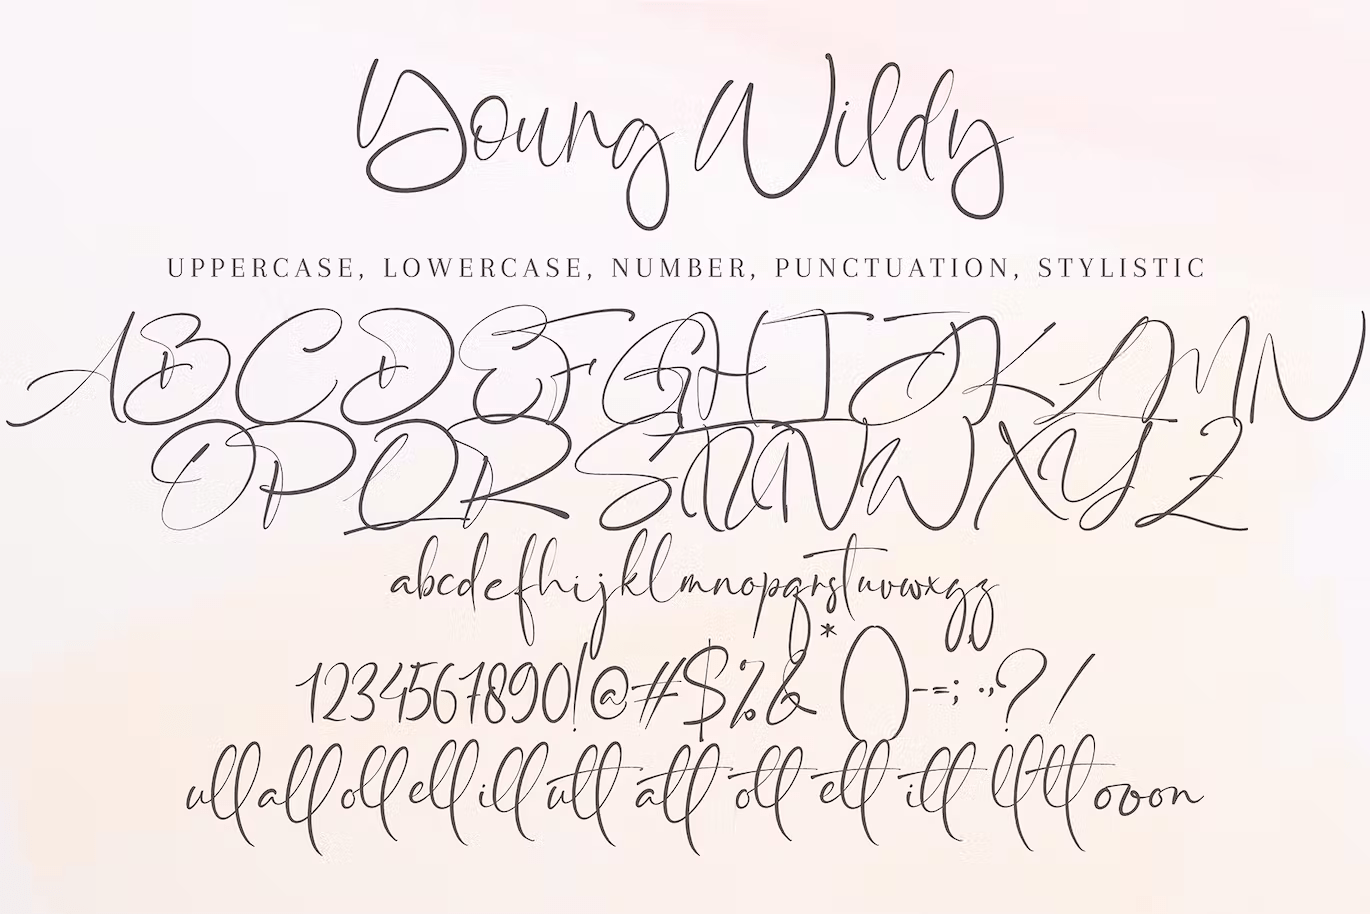 Young Wildy
UPPERCASE, LOWERCASE, NUMBER, PUNCTUATION, STYLISTIC
ABCDEFGHIJKLMN
OPQRSTUVWXYZ
abcdefhijklmnopqrstuvwxyz
1234567890!@#$%&*()--=;:,?/
ull all oll ell ill utt att ott ett itt lltt oo on